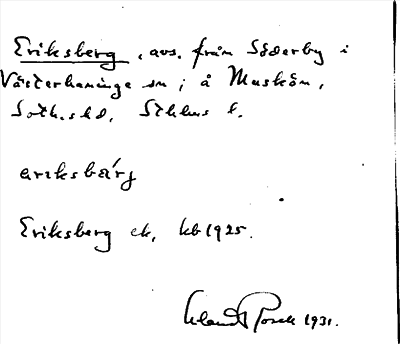 Eriksberg, avs. från Söderby i
Västerhaninge sn; å Muskön,
Soth. hd, Sthlms l.
eriksbärj
Eriksberg ek, kb 1925.
1931.